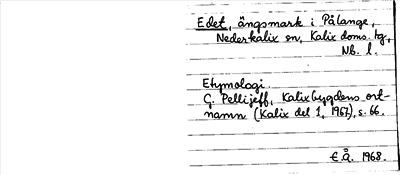 Edet, ängsmark i Pålänge,
Nederkalix sn, Kalix doms. tg,
Nb. l.
Etymologi.
G. Pellijeff, Kalixbygdens ort-
namn (Kalix del 1, 1967), s. 66.
E.Å. 1968.